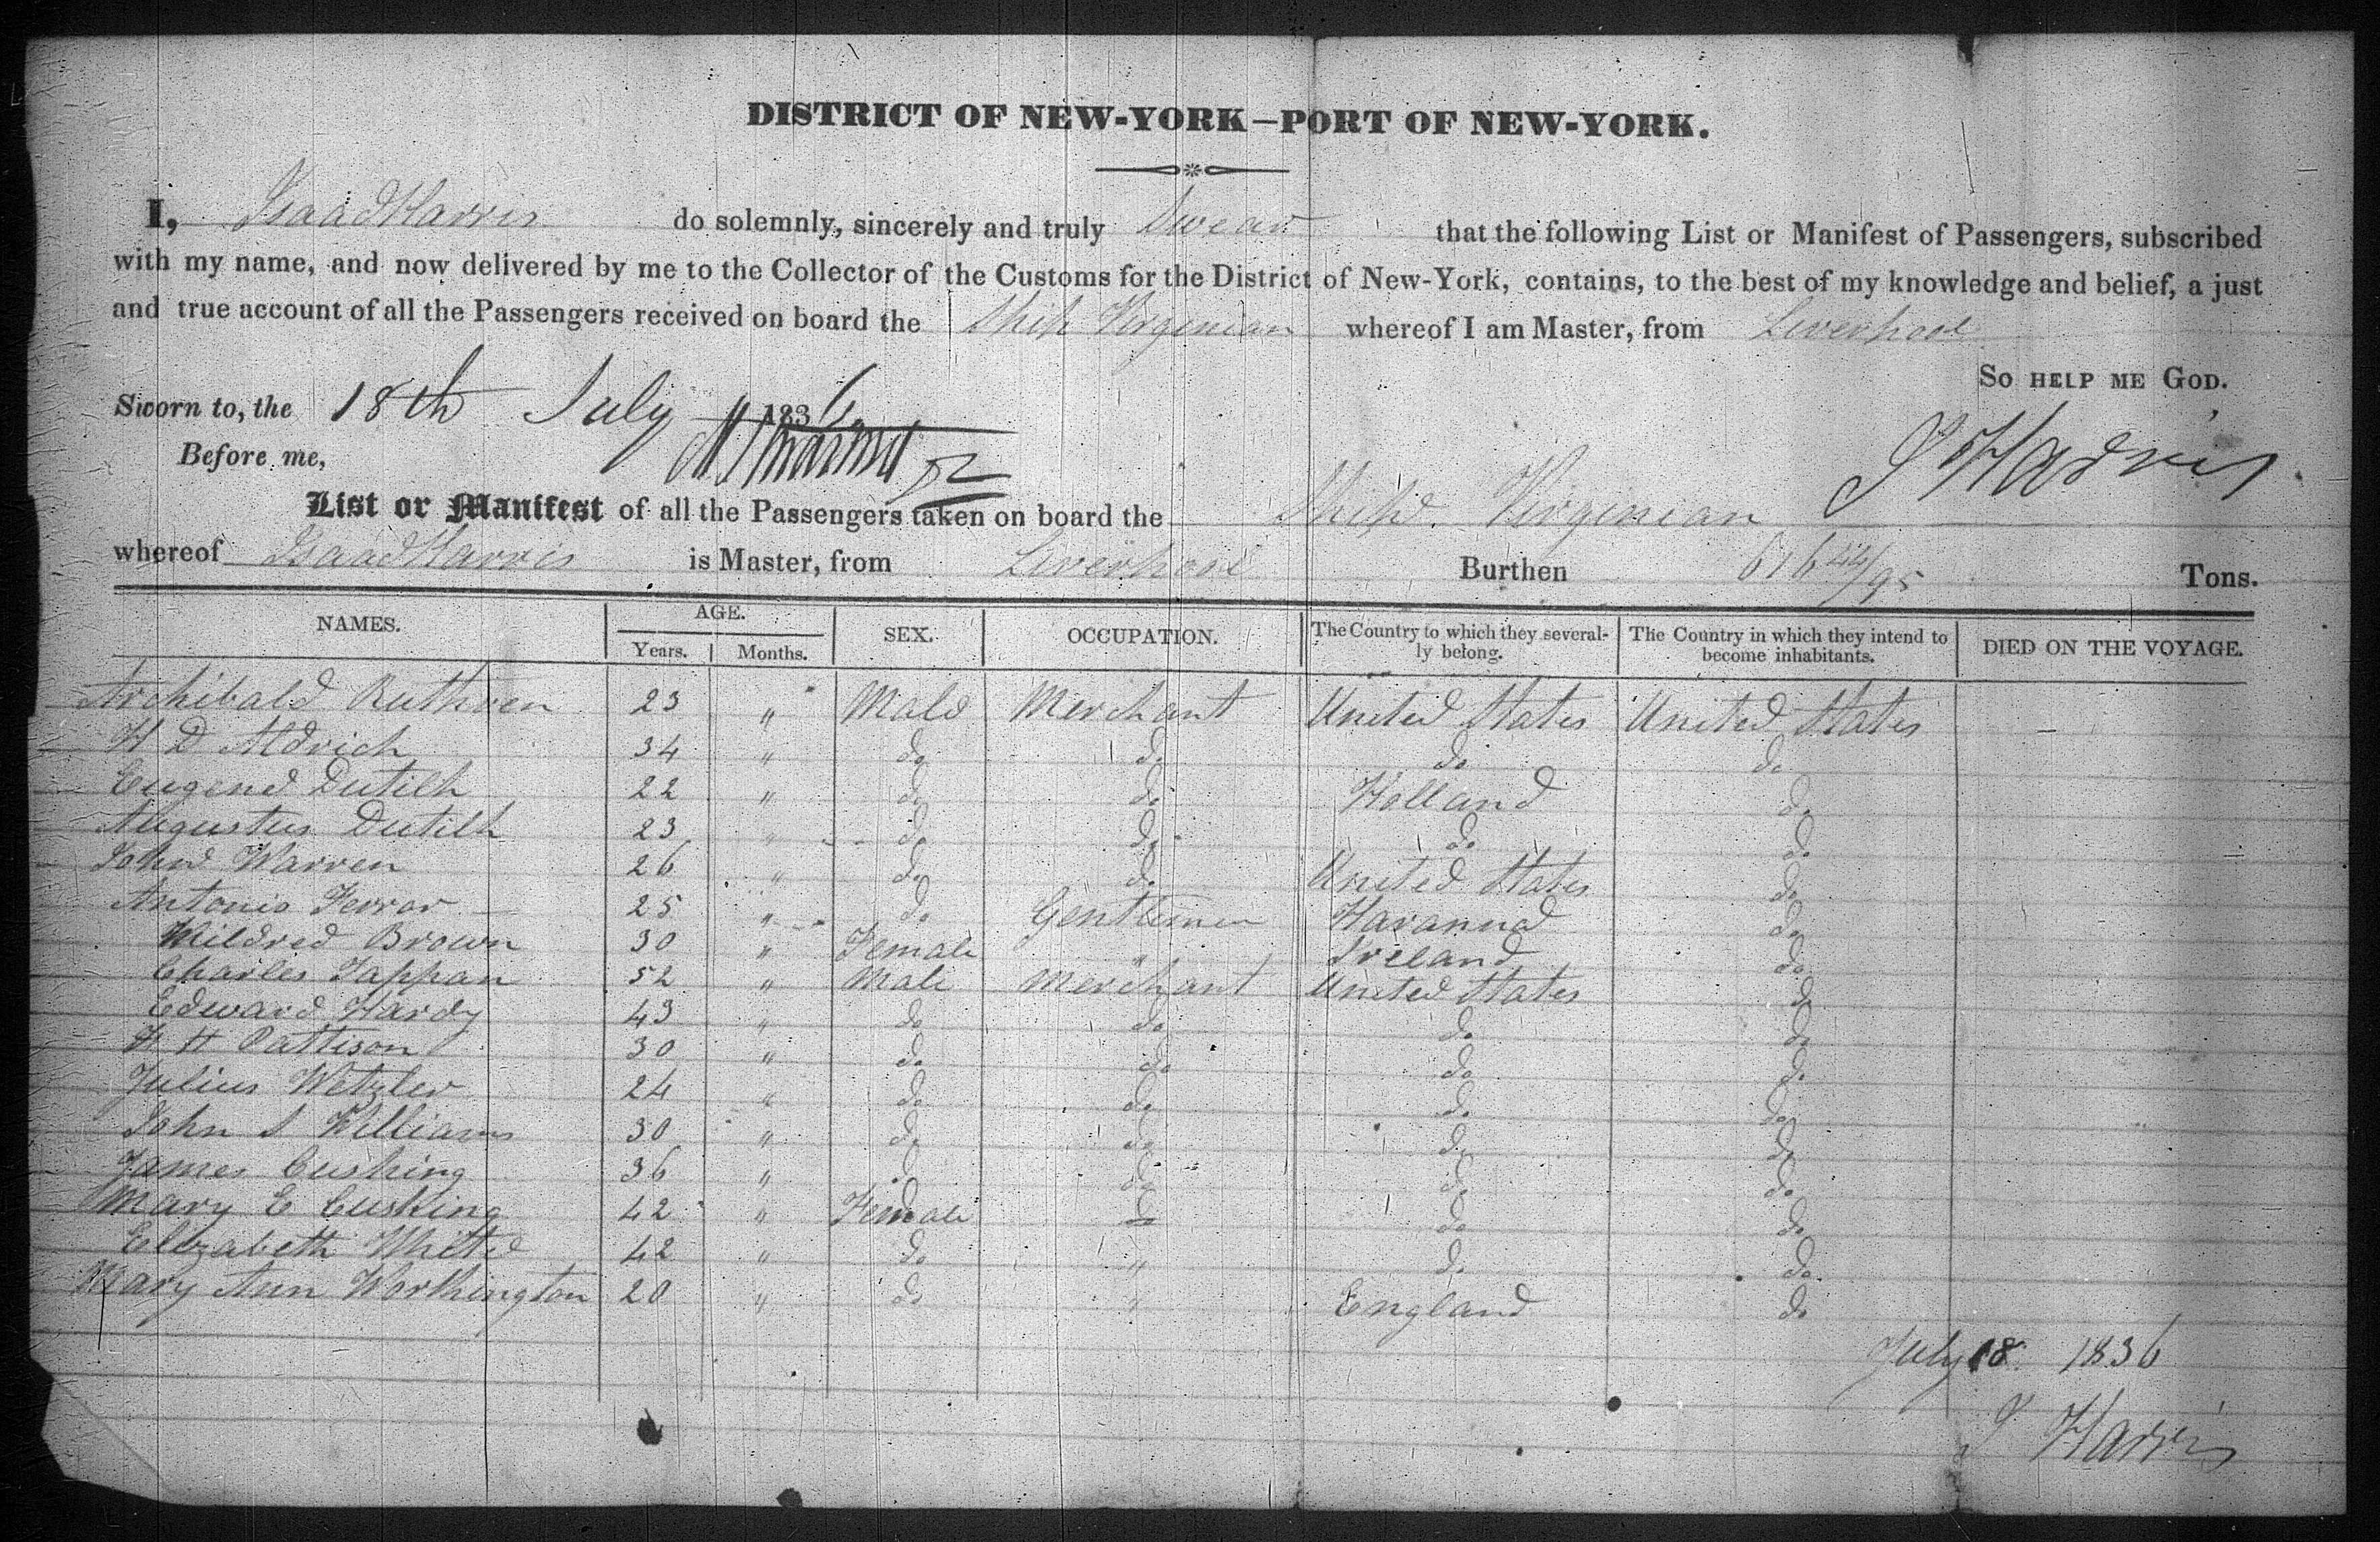 DISTRICT OF NEW-YORK—PORT OF NEW-YORK.
I, Isaac Harris do solemnly, sincerely and truly Swear that the following List or Manifest of Passengers, subscribed
with my name, and now delivered by me to the Collector of the Customs for the District of New-York, contains, to the best of my knowledge and belief, a just
and true account of all the Passengers received on board the Ship Virginian whereof I am Master, from Liverpool
So HELP ME GOD.
Sworn to, the 18th July 1836
Before me,
I Harris
List or Manifest of all the Passengers taken on board the Ship Virginian
whereof Isaac Harris is Master, from Liverpool Burthen 616 44/95 Tons.
NAMES. AGE. Years. Months. SEX. OCCUPATION. The Country to which they several-ly belong. The Country in which they intend to become inhabitants. DIED ON THE VOYAGE.
Archibald Ruthven 23 " Male Merchant United States United States –
H D Aldrich 34 " do do do do
Eugene Dutilh 22 " do do Holland do
Augustus Dutilh 23 " do do do do
John Warren 26 " do do United States do
Antonio Ferrar 25 " do Gentleman Havanna do
Mildred Brown 30 " Female " Ireland do
Charles Tappan 52 " Male Merchant United States do
Edward Hardy 43 " do do do do
H H Pattison 30 " do do do do
Julius Wetzler 24 " do do do do
John S Williams 30 " do do do do
James Cushing 36 " do do do do
Mary E Cushing 42 " Female do do do
Elizabeth White 42 " do " do do
Mary Ann Worthington 20 " do " England do
July 18 1836
I Harris